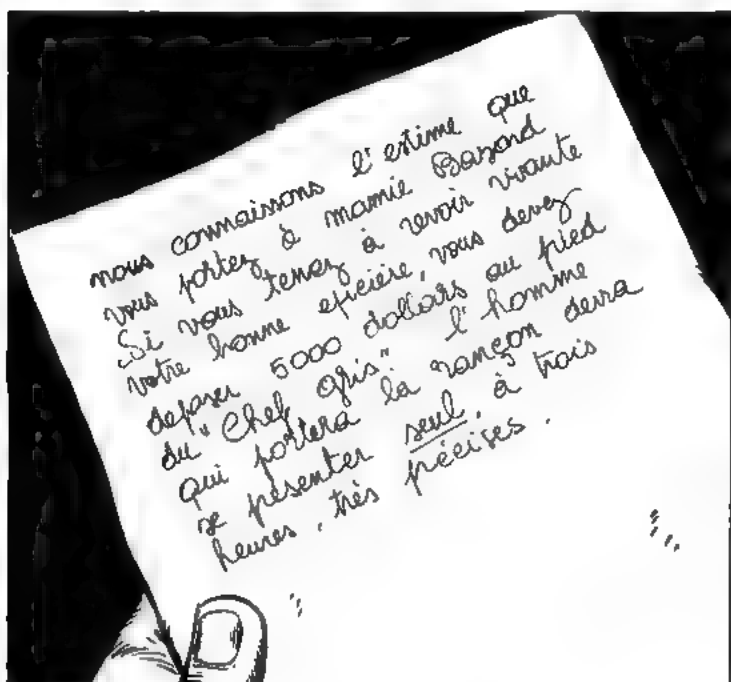 nous connaissons l'estime que
vous portez à mamie Bazond
Si vous tenez à revoir vivante
votre bonne épicière, vous devez
déposer 5000 dollars au pied
du "Chef gris" l'homme
qui portera la rançon devra
se présenter seul, à trois
heures, très précises.